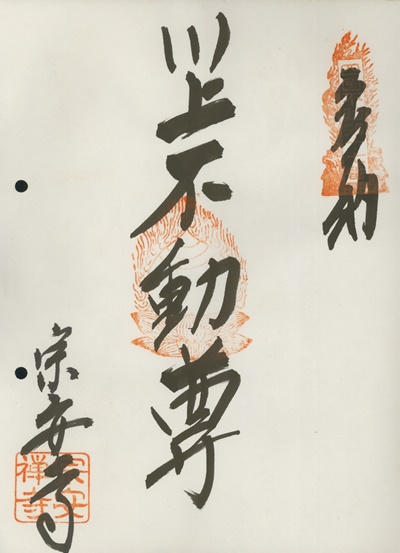 奉納
川上不動尊
宗安寺
宗安
禅寺